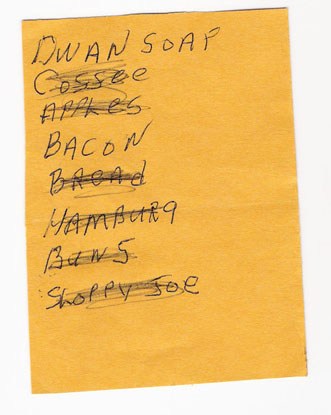 DWAN SOAP
Cossee
APPLES
BACON
BREAd
HAMBURG
BUNS
ShOPPY JOE